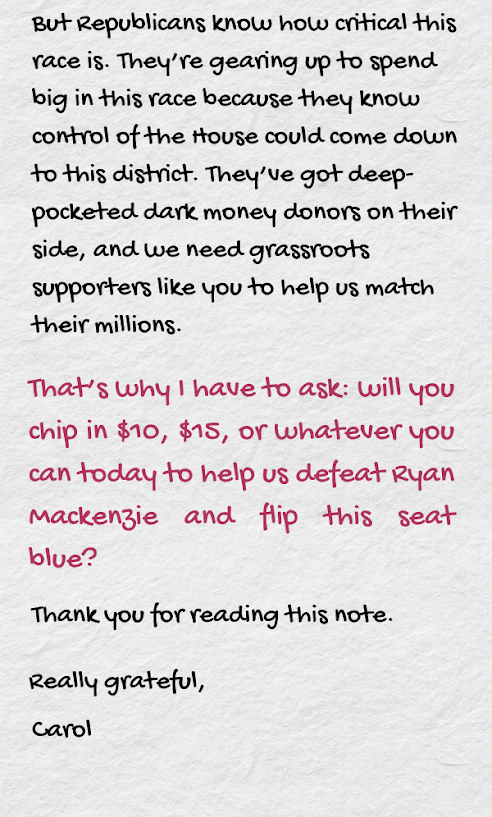 But Republicans know how critical this
race is. They're gearing up to spend
big in this race because they know
control of the House could come down
to this district. They've got deep-
pocketed dark money donors on their
side, and we need grassroots
supporters like you to help us match
their millions.
That's why I have to ask: Will you
chip in $10, $15, or whatever you
can today to help us defeat Ryan
Mackenzie and flip this seat
blue?
Thank you for reading this note.
Really grateful,
Carol